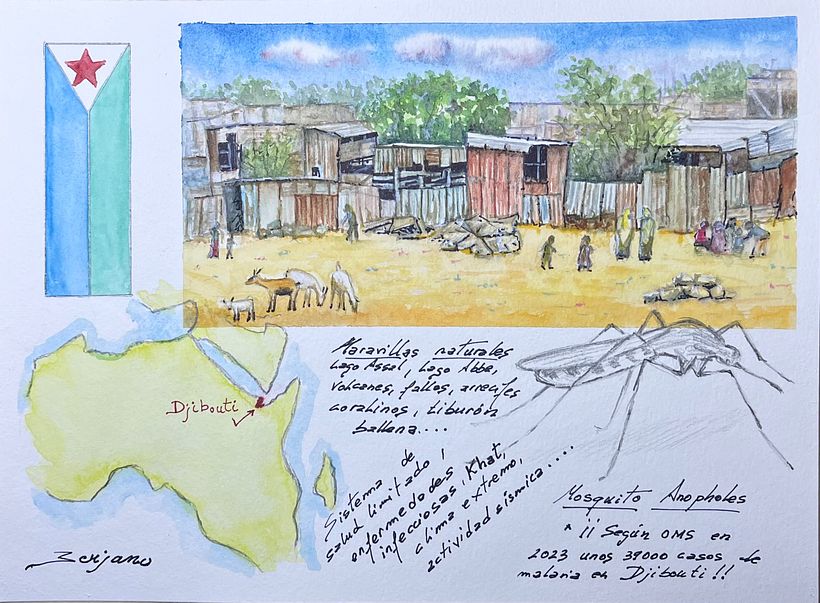 Maravillas naturales
Lago Assal, Lago Abbe,
Volcanes, fallas, arrecifes
coralinos, tiburón
ballena....
Djibouti
Sistema de
salud limitado,
enfermedades
infecciosas, Khat,
clima extremo,
actividad sísmica....
Mosquito Anopheles
* ¡¡ Según OMS en
2023 unos 39000 casos de
malaria en Djibouti !!
Berjano